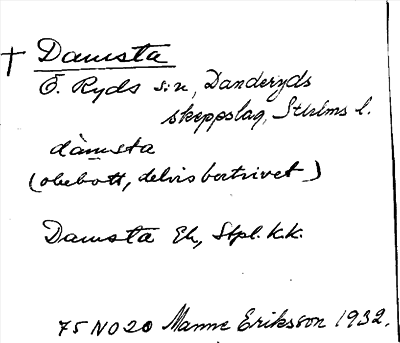 † Damsta
Ö. Ryds sn, Danderyds
skeppslag, Sthlms l.
dàmsta
(obebott, delvis bortrivet)
Damsta Ek, Stpl. k.k.
75 NO 20 Manne Eriksson 1932.